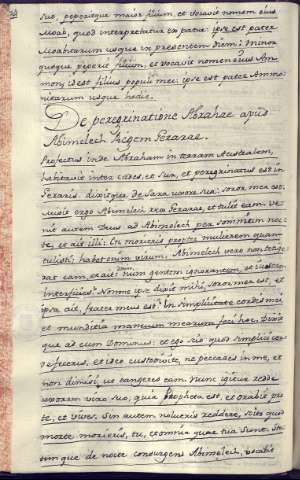 suo, peperitque maior filium, et vocavit nomen eius
Moab, quod interpretatur ex patre: ipse est pater
Moabitarum usque in presentem diem: Minor
quoque peperit filium, et vocavit nomen eius Am
mon, id est filius populi mei: ipse est pater Ammo
nitarum usque hodie.
De peregrinatione Abrahae apud
Abimelech Regem Gerarae.
Profectus inde Abraham in terram Australem,
habitavit inter Cades, et Sur, et peregrinatus est in
Geraris. dixitque de Sara uxore sua: soror mea est.
Misit ergo Abimelech rex Gerarae, et tulit eam. ve
nit autem Deus ad Abimelech per somnium noc
te, et ait illi: En morieris propter mulierem quam
tulisti: habet enim virum. Abimelech vero non tetige
rat eam, et ait: Domine, num gentem ignorantem, et iustam
interficies? Nonne ipse dixit mihi, soror mea est, et
ipsa ait, frater meus est? In simplicitate cordis mei
et munditia manuum mearum feci hoc. Dixit
que ad eum Dominus: et ego scio quod simplici cor
de feceris, et ideo custodivi te, ne peccares in me, et
non dimisi, ut tangeres eam. Nunc igitur redde
uxorem viro suo, quia Propheta est, et orabit pro
te, et vives. Sin autem nolueris reddere, scito quod
morte morieris, tu, et omnia quae tua sunt. Sta
timque de nocte consurgens Abimelech, vocabit